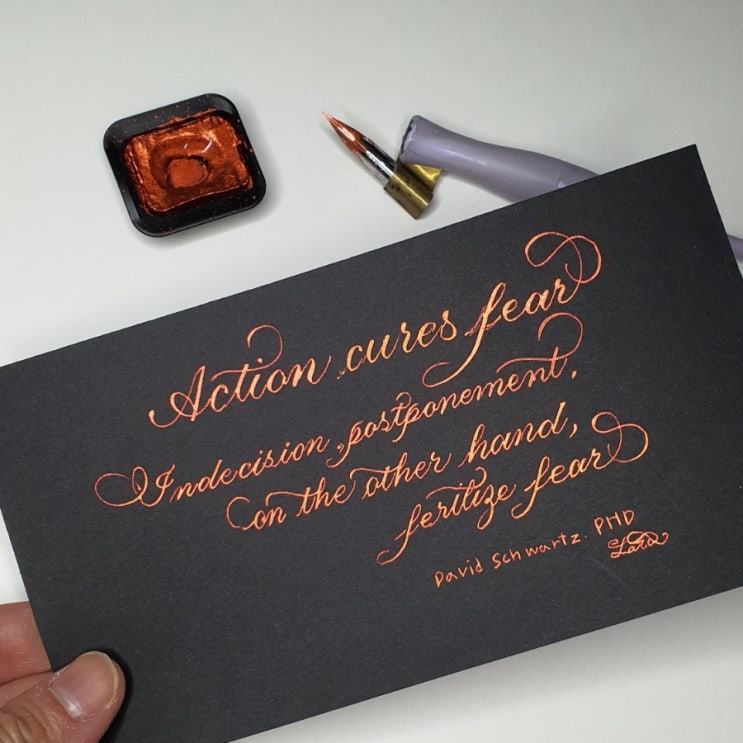 Action cures fear
Indecision, postponement,
on the other hand,
ferilize fear
David Schwartz. PHD
Lara